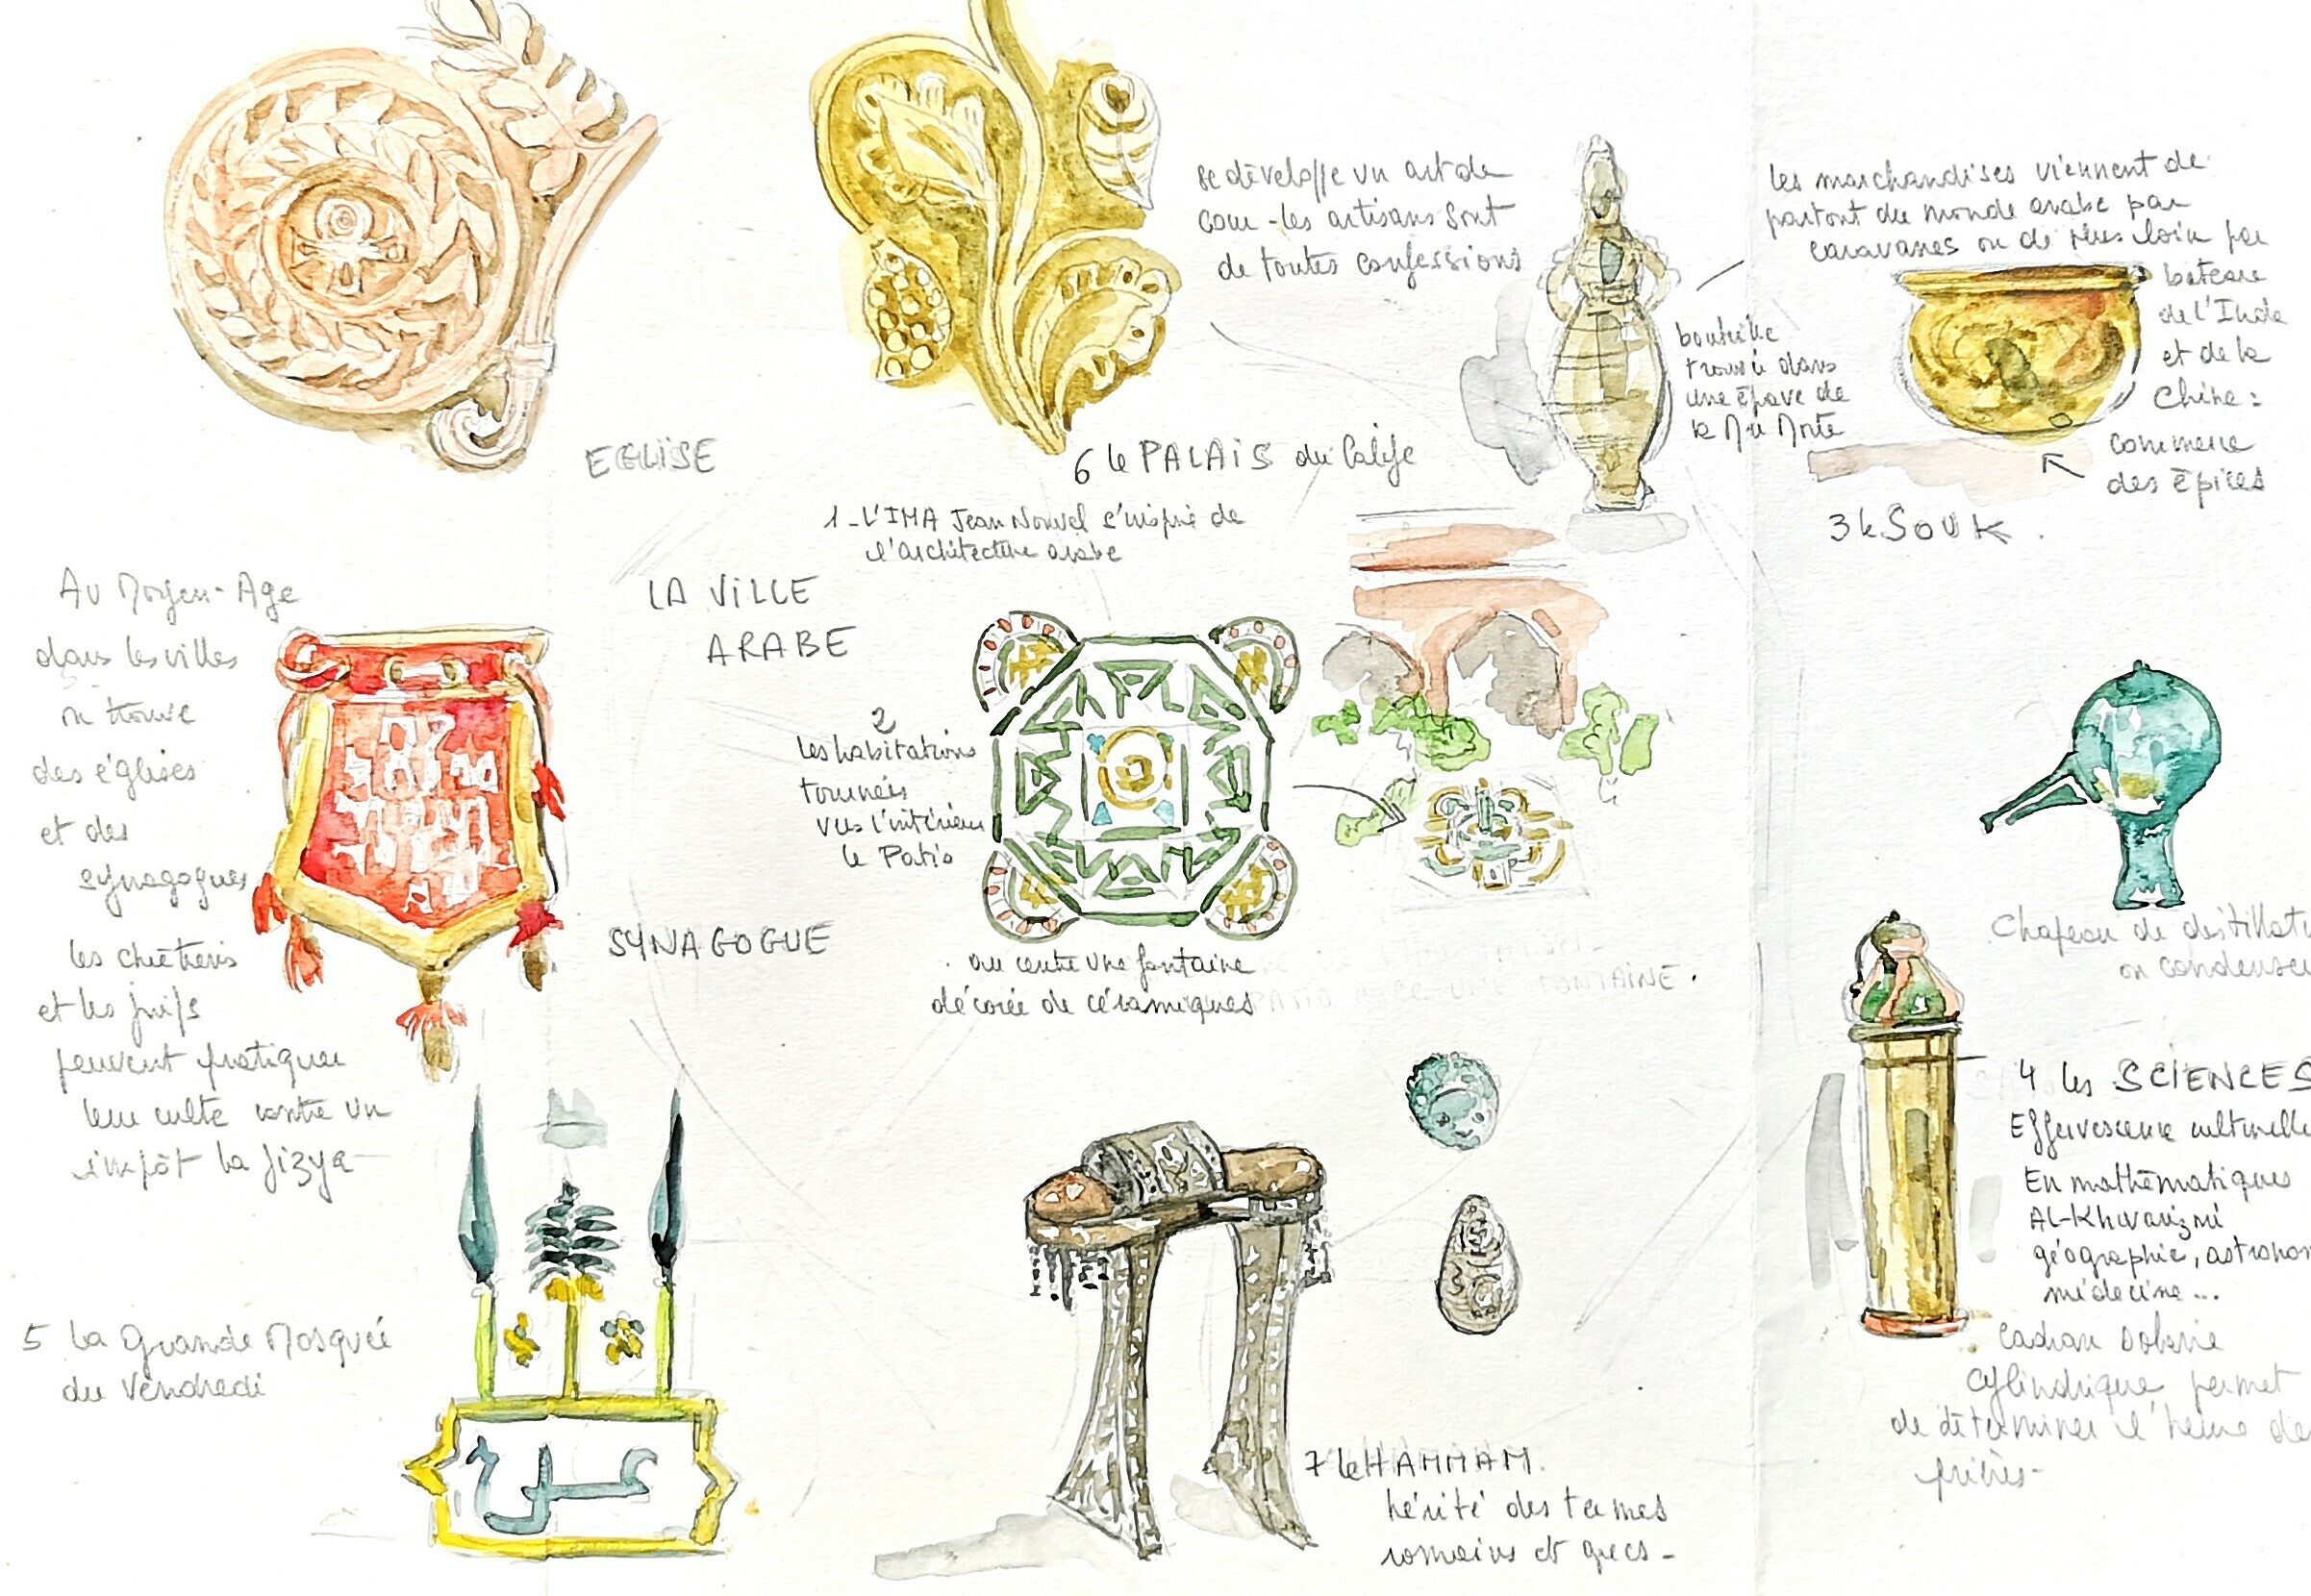 se développe un art de
cour - les artisans sont
de toutes confessions
les marchandises viennent de
partout du monde arabe par
caravanes ou de plus loin par
bateau
de l'Inde
et de la
Chine :
commerce
des épices
bouteille
trouvée dans
une épave de
la Mer Morte
EGLISE
6 le PALAIS du Calife
3 le SOUK.
1 - L'IMA Jean Nouvel s'inspire de
l'architecture arabe
LA VILLE
ARABE
Au Moyen-Age
dans les villes
on trouve
des églises
et des
synagogues
les chrétiens
et les juifs
peuvent pratiquer
leur culte contre un
impôt la jizya
2
les habitations
tournées
vers l'intérieur
le Patio
SYNAGOGUE
au centre une fontaine
décorée de céramiques
FONTAINE.
Chapeau de distillat
ou condense
4 les SCIENCES
Effervescence culturelle
En mathématiques
AL-Khwarizmi
géographie, astronom
médecine...
Cadran solaire
cylindrique permet
de déterminer l'heure de
prières-
5 la Grande Mosquée
du Vendredi
7 le HAMMAM.
hérité des termes
romains et grecs -